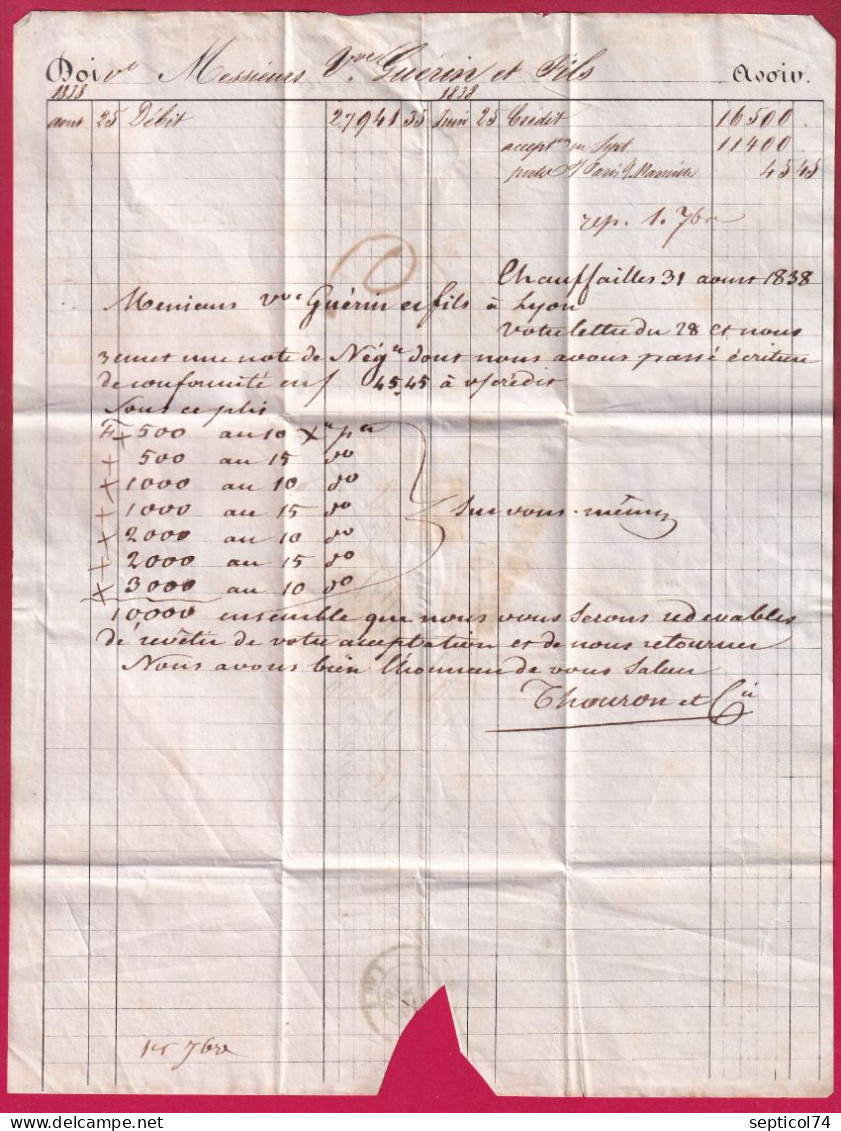 Doivt Messieurs Vve Guérin et Fils Avoir.
1838 1838
aout 25 Débit 27941 35 Juin 25 Crédit 16500
acceptons en Sept 11400
perte s/ Paris & Marseille 45 45
rep. 1. 7bre
Chauffailles 31 aoust 1838
Messieurs vve Guérin et fils à Lyon
Votre lettre du 28 ct nous
remet une note de Négon dont nous avons passé écriture
de conformité en f 45.45 à v/crédit
Sous ce plis
F 500 au 10 Xre pn
500 au 15 do
1000 au 10 do
1000 au 15 do Sur vous-mêmes
2000 au 10 do
2000 au 15 do
3000 au 10 do
10000 ensemble que nous vous serons redevables
de revêtir de votre acceptation et de nous retourner
Nous avons bien l'honneur de vous saluer
Thouron et Cie
1er 7bre
septicol74